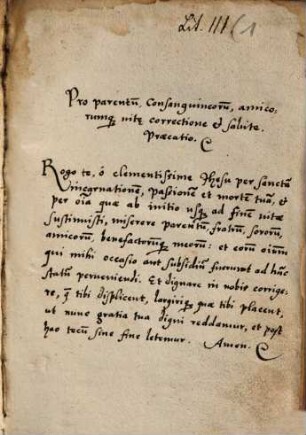 Lit. III (1
Pro parentũ, Consanguineorũ, amico-
rumq; uitę correctione et salute.
Præcatio.
Rogo te, ó clementissime Jhesu per sanctã
incarnationem, passionẽ et mortẽ tuã, et
per oĩa quæ ab initio usq; ad finẽ uitæ
sustinuisti, miserere parentũ, fratrũ, sororũ,
amicorũ, benefactorumq; meorũ: et eorũ oĩum
qui mihi occasio aut subsidiũ fuerunt ad hũc
statũ perueniendi. Et dignare in nobis corrige-
re, q̃ tibi displicent, largiriq; quæ tibi placent,
ut nunc gratia tua digni reddamur, et post
hac tecũ sine fine letemur. Amen.